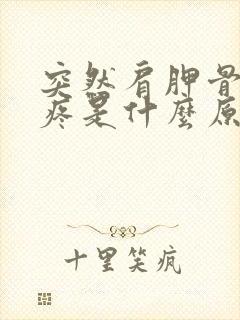 突然肩胛骨
疼是什麼原
十里笑疯